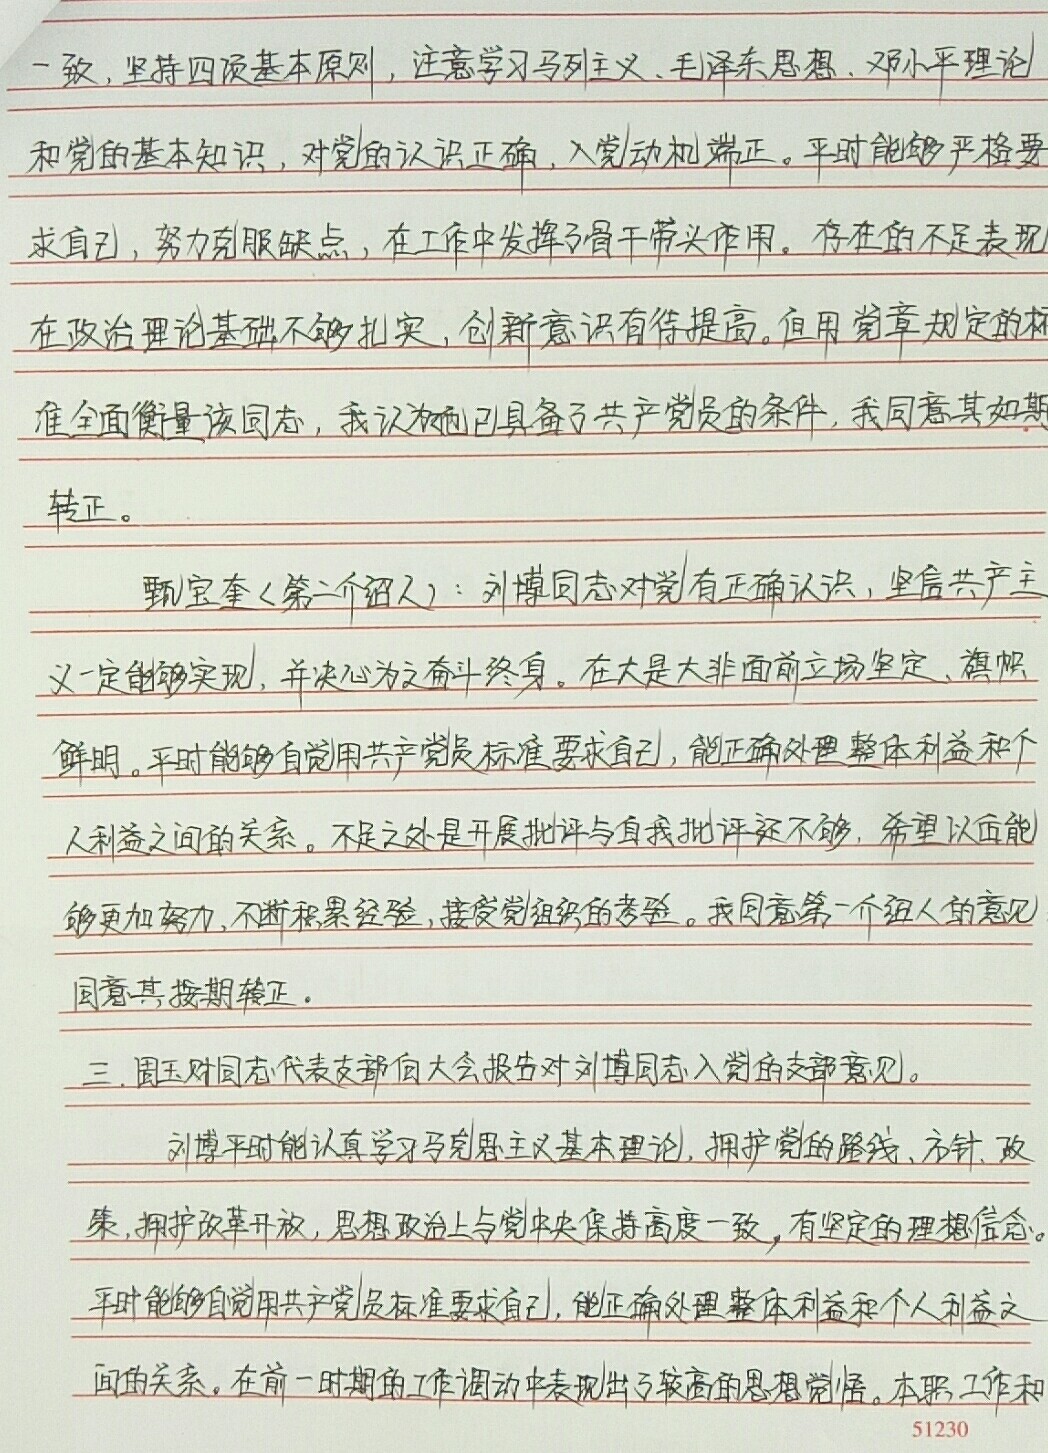 一致，坚持四项基本原则，注意学习马列主义、毛泽东思想、邓小平理论
和党的基本知识，对党的认识正确，入党动机端正。平时能够严格要
求自己，努力克服缺点，在工作中发挥了骨干带头作用。存在的不足表现
在政治理论基础不够扎实，创新意识有待提高。但用党章规定的标
准全面衡量该同志，我认为他已具备了共产党员的条件，我同意其如期
转正。
甄宝奎（第二介绍人）：刘博同志对党有正确认识，坚信共产主
义一定能够实现，并决心为之奋斗终身。在大是大非面前立场坚定、旗帜
鲜明。平时能够自觉用共产党员标准要求自己，能正确处理整体利益和个
人利益之间的关系。不足之处是开展批评与自我批评还不够，希望以后能
够更加努力，不断积累经验，接受党组织的考验。我同意第一介绍人的意见
同意其按期转正。
三、周玉财同志代表支部向大会报告对刘博同志入党的支部意见。
刘博平时能认真学习马克思主义基本理论，拥护党的路线、方针、政
策，拥护改革开放，思想政治上与党中央保持高度一致，有坚定的理想信念。
平时能够自觉用共产党员标准要求自己，能正确处理整体利益和个人利益之
间的关系。在前一时期的工作调动中表现出了较高的思想觉悟。本职工作和
51230